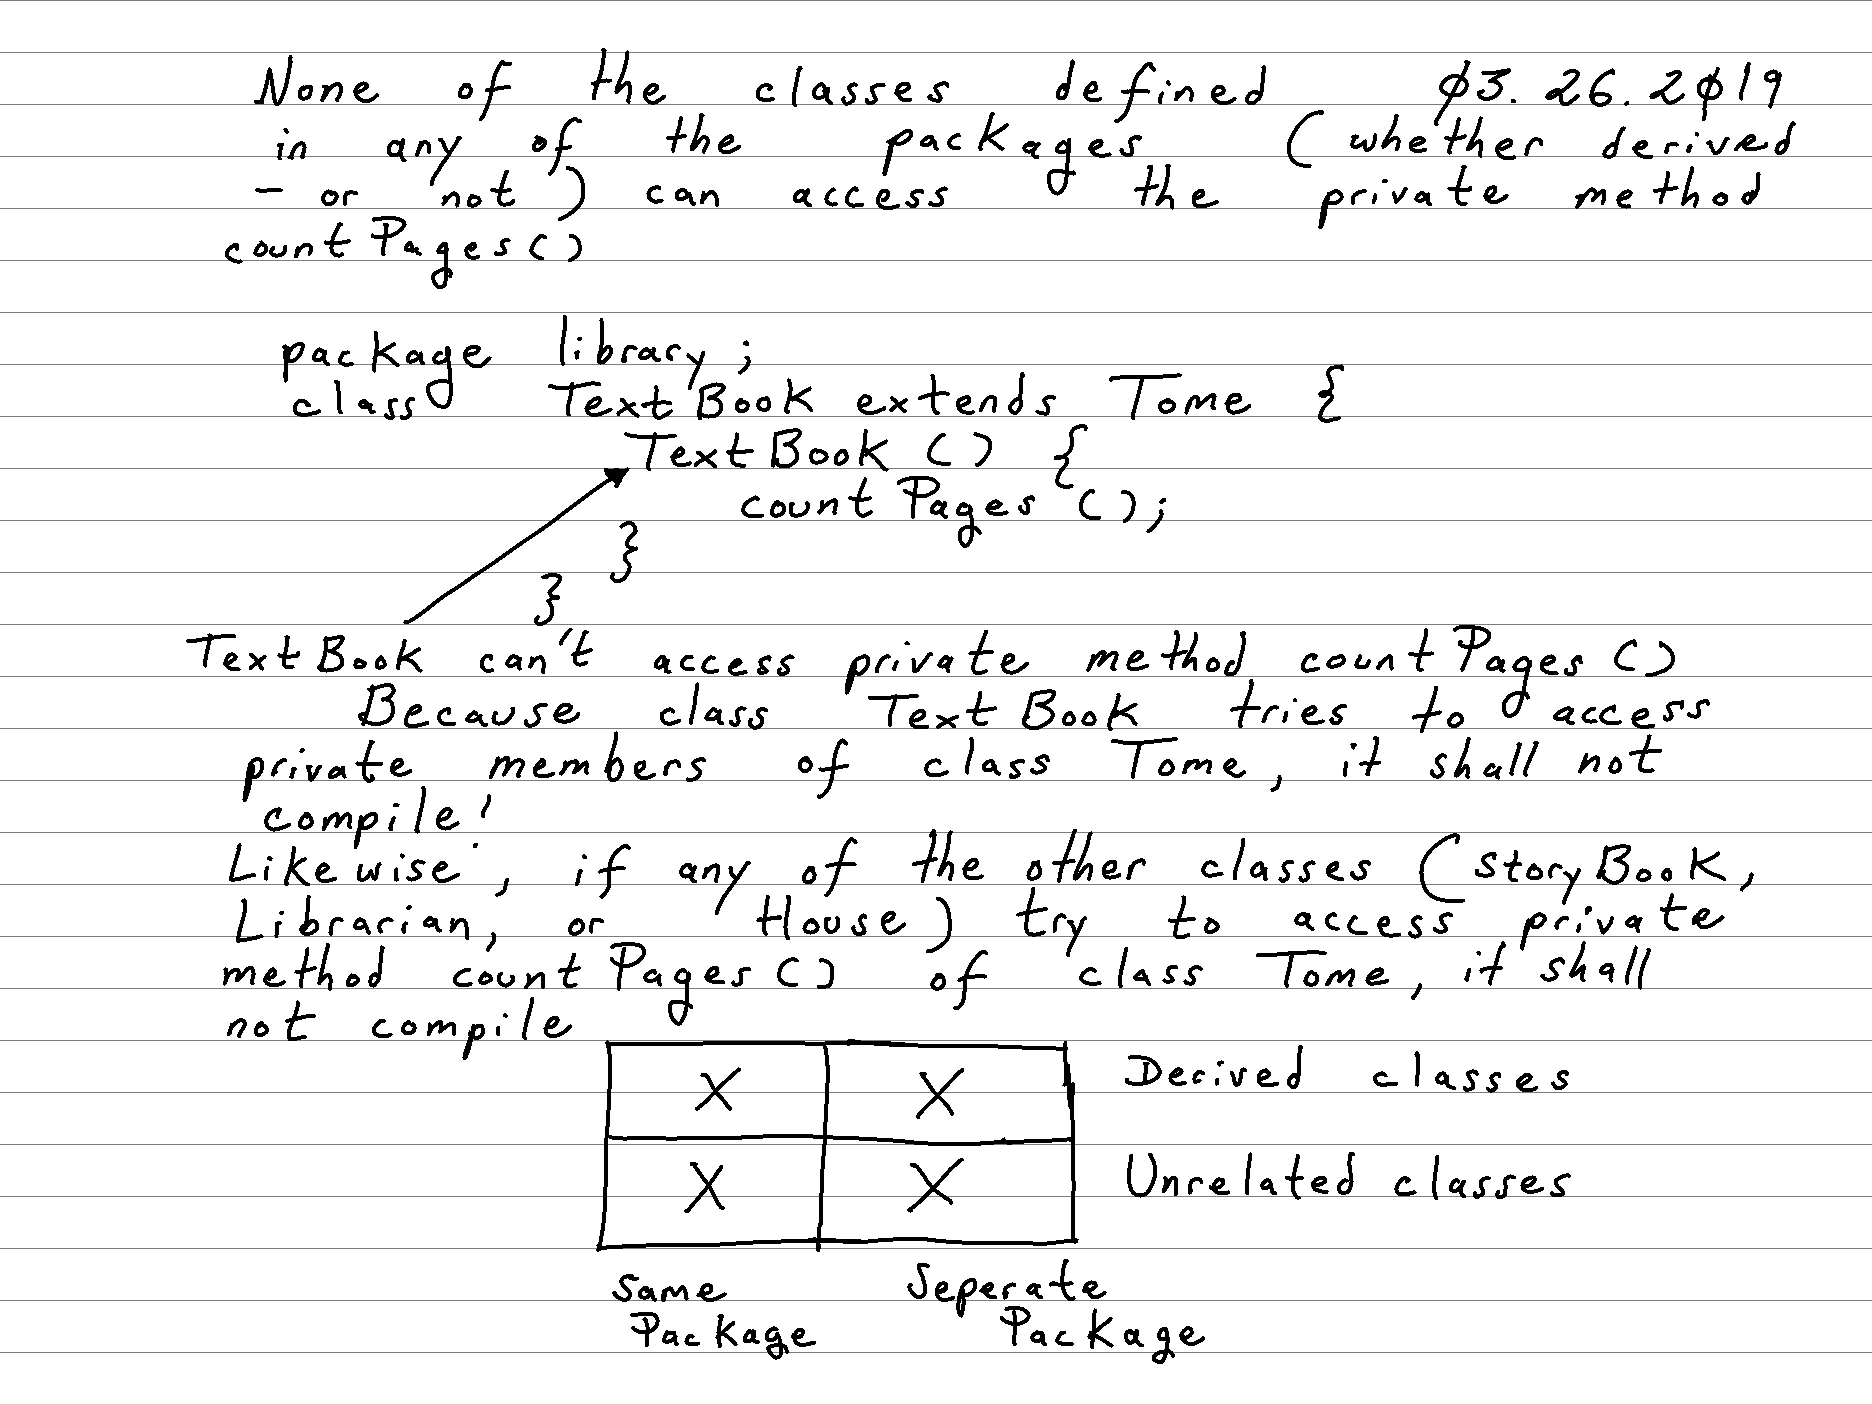 None of the classes defined 03.26.2019
in any of the packages (whether derived
- or not) can access the private method
countPages()
package library;
class TextBook extends Tome {
TextBook () {
countPages ();
}
}
TextBook can't access private method countPages ()
Because class TextBook tries to access
private members of class Tome, it shall not
compile!
Likewise, if any of the other classes (StoryBook,
Librarian, or House) try to access private
method countPages() of class Tome, it shall
not compile
X X Derived classes
X X Unrelated classes
Same Seperate
Package Package